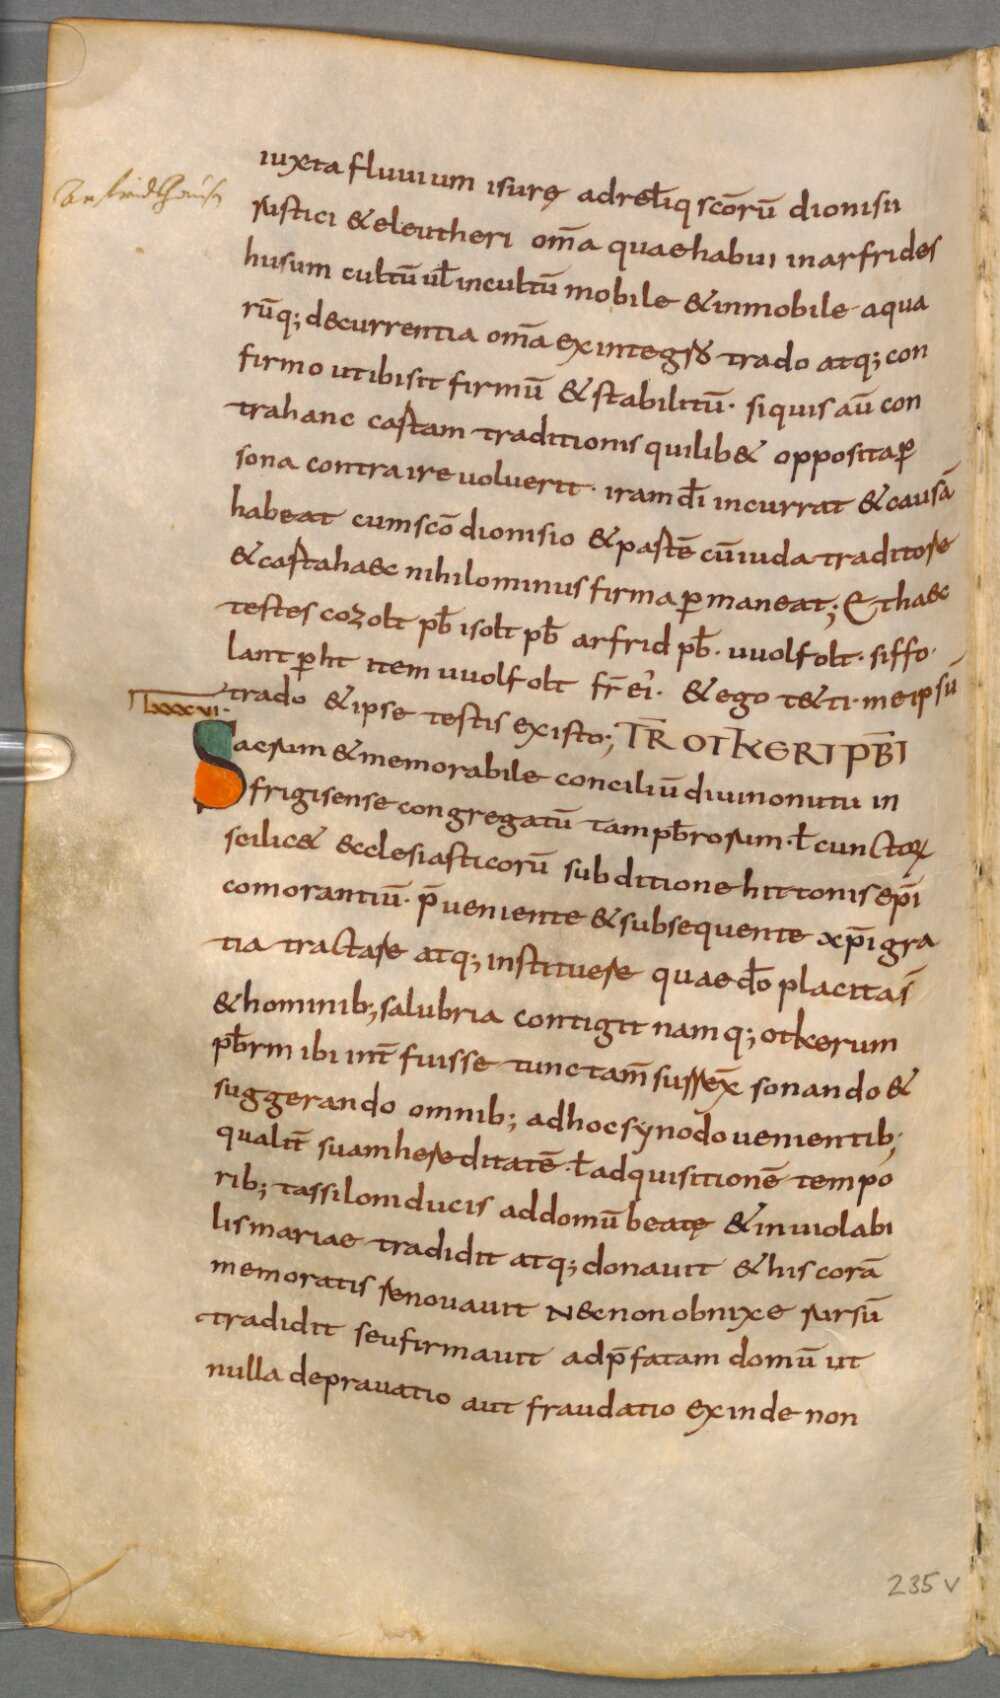 iuxta fluuium isurę ad reƚiq scōrū dionisii
Arfridhausn
rustici & eleutheri om̄a quae habui in arfrides
husum cultū uƚ incultū mobile & inmobile aqua
rūq; decurrentia om̄a ex integro trado atq; con
firmo ut ibi sit firmū & stabilitū· si quis aū con
tra hanc cartam traditionis quilib& opposita ꝑ
sona contraire uoluerit· iram dī incurrat & causā
habeat cum scō dionisio & partē cū iuda traditore
& carta haec nihilominus firma ꝑmaneat; Et haec
testes cozolt pƀ isolt pƀ arfrid pƀ· uuolfolt· siffo·
lantꝑht item uuolfolt fr̄ ei· & ego t&ti· me ipsū
trado & ipse testis existo; TR̄ OTKERI PB̄I
Lxxxvi·
Sacrum & memorabile conciliū diuino nutu in
frigisense congregatū tam pƀrorum· ƚ cunctoꝝ
scilic& &cclesiasticorū sub ditione hittonis ep̄i
comorantiū· p̄ueniente & subsequente xp̄i gra
tia tractare atq; instituere quae dō placitas̄
& hominib; salubria contigit namq; otkerum
pƀrm ibi int̄ fuisse tunc tam̄ surrex̄ sonando &
suggerando omnib; ad hoc synodo uenientib;
qualit̄ suam hereditatē· ƚ adquisitionē tempo
rib; tassiloni ducis ad domū beatę & inuiolabi
lis mariae tradidit atq; donauit & his corā
memoratis renouauit N&cnon obnixe rursū
tradidit seu firmauit ad p̄fatam domū ut
nulla deprauatio aut fraudatio exinde non
235 v